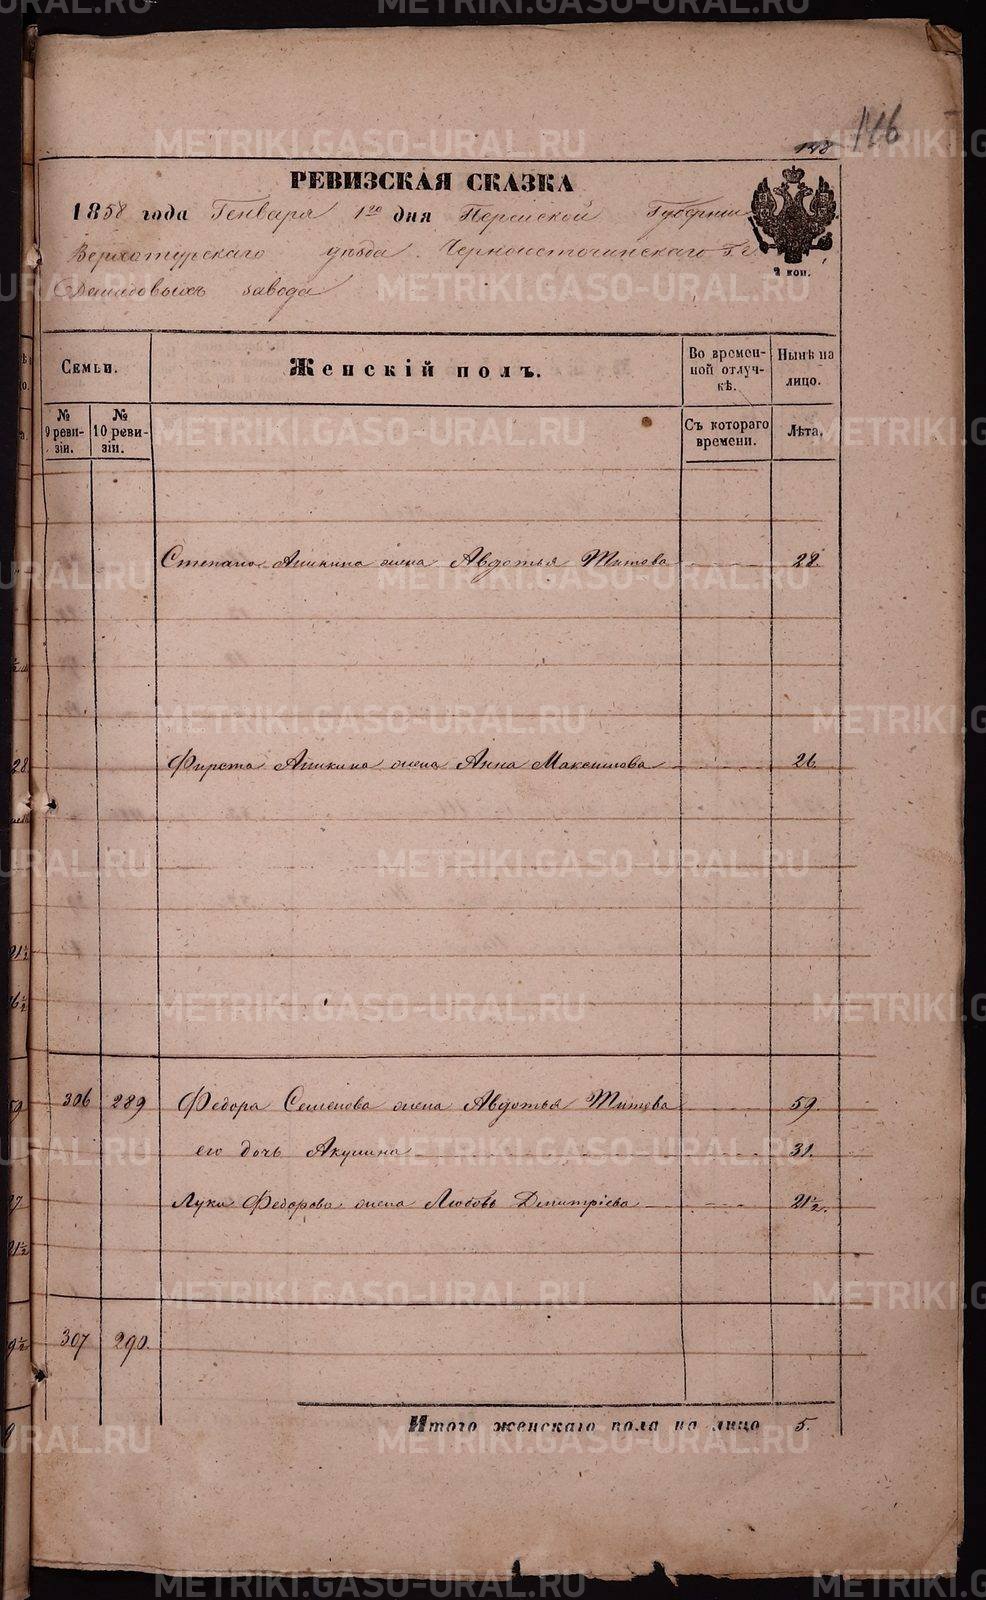 146
148
РЕВИЗСКАЯ СКАЗКА
1858 года Генваря 1го дня Пермской Губернии
Верхотурского уезда Черноисточинского Г.г.
Демидовыхъ завода
2 коп.
Семьи. Женскій полъ. Во времен-ной отлуч-кѣ. Нынѣ на лицо.
№ 9 реви-зіи. № 10 реви-зіи. Съ котораго времени. Лѣта.
Степана Аникина жена Авдотья Титова 28.
Фирста Аникина жена Анна Максимова 26
306 289 Федора Семенова жена Авдотья Титова 59.
его дочь Акулина 31.
Луки Федорова жена Любовь Дмитріева 21½.
307 290.
Итого женскаго пола на лицо 5.
28
21½
16½
59
27
21½
9½
METRIKI.GASO-URAL.RU